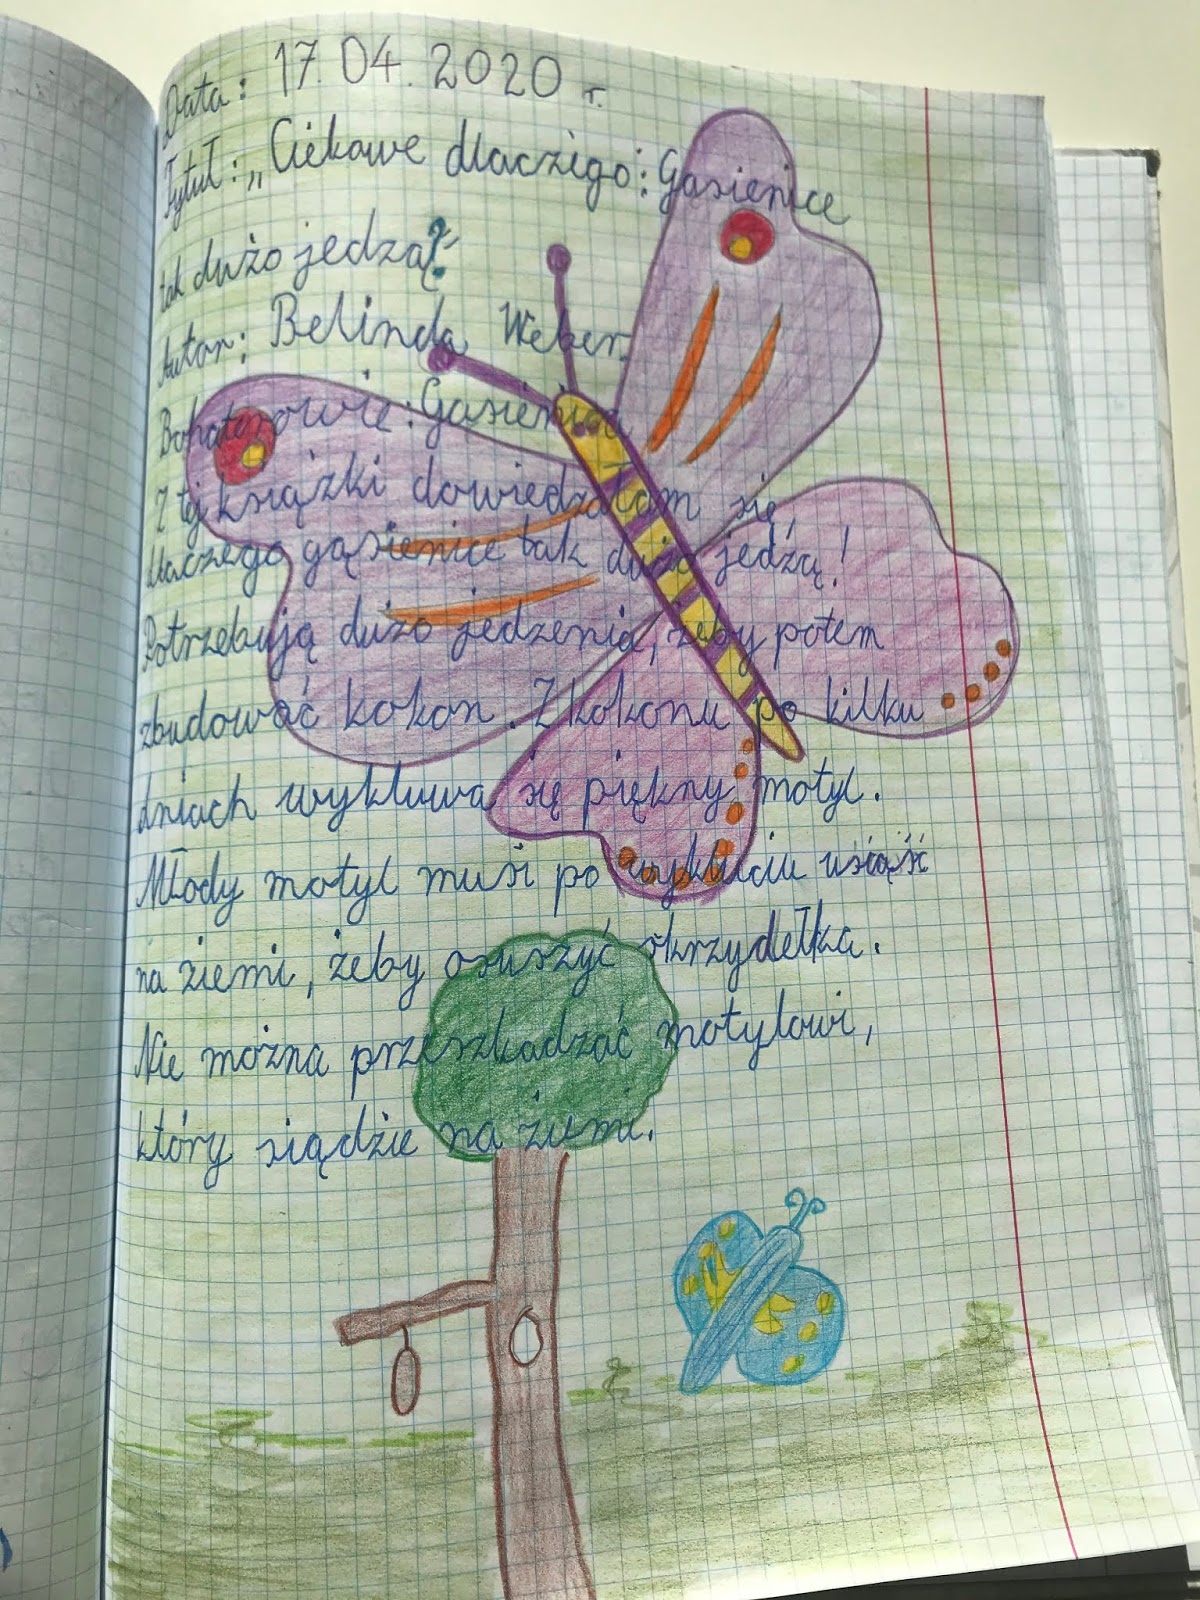 Data: 17.04.2020 r.
Tytuł: „Ciekawe dlaczego: Gąsienice
tak dużo jedzą?"
Autor: Belinda Weber.
Bohaterowie: Gąsienica
Z tej książki dowiedzałam się,
dlaczego gąsienice tak dużo jedzą!
Potrzebują dużo jedzenia, żeby potem
zbudować kokon. Z kokonu po kilku
dniach wykluwa się piękny motyl.
Młody motyl musi po wykluciu usiąść
na ziemi, żeby osuszyć skrzydełka.
Nie można przeszkadzać motylowi,
który siądzie na ziemi.